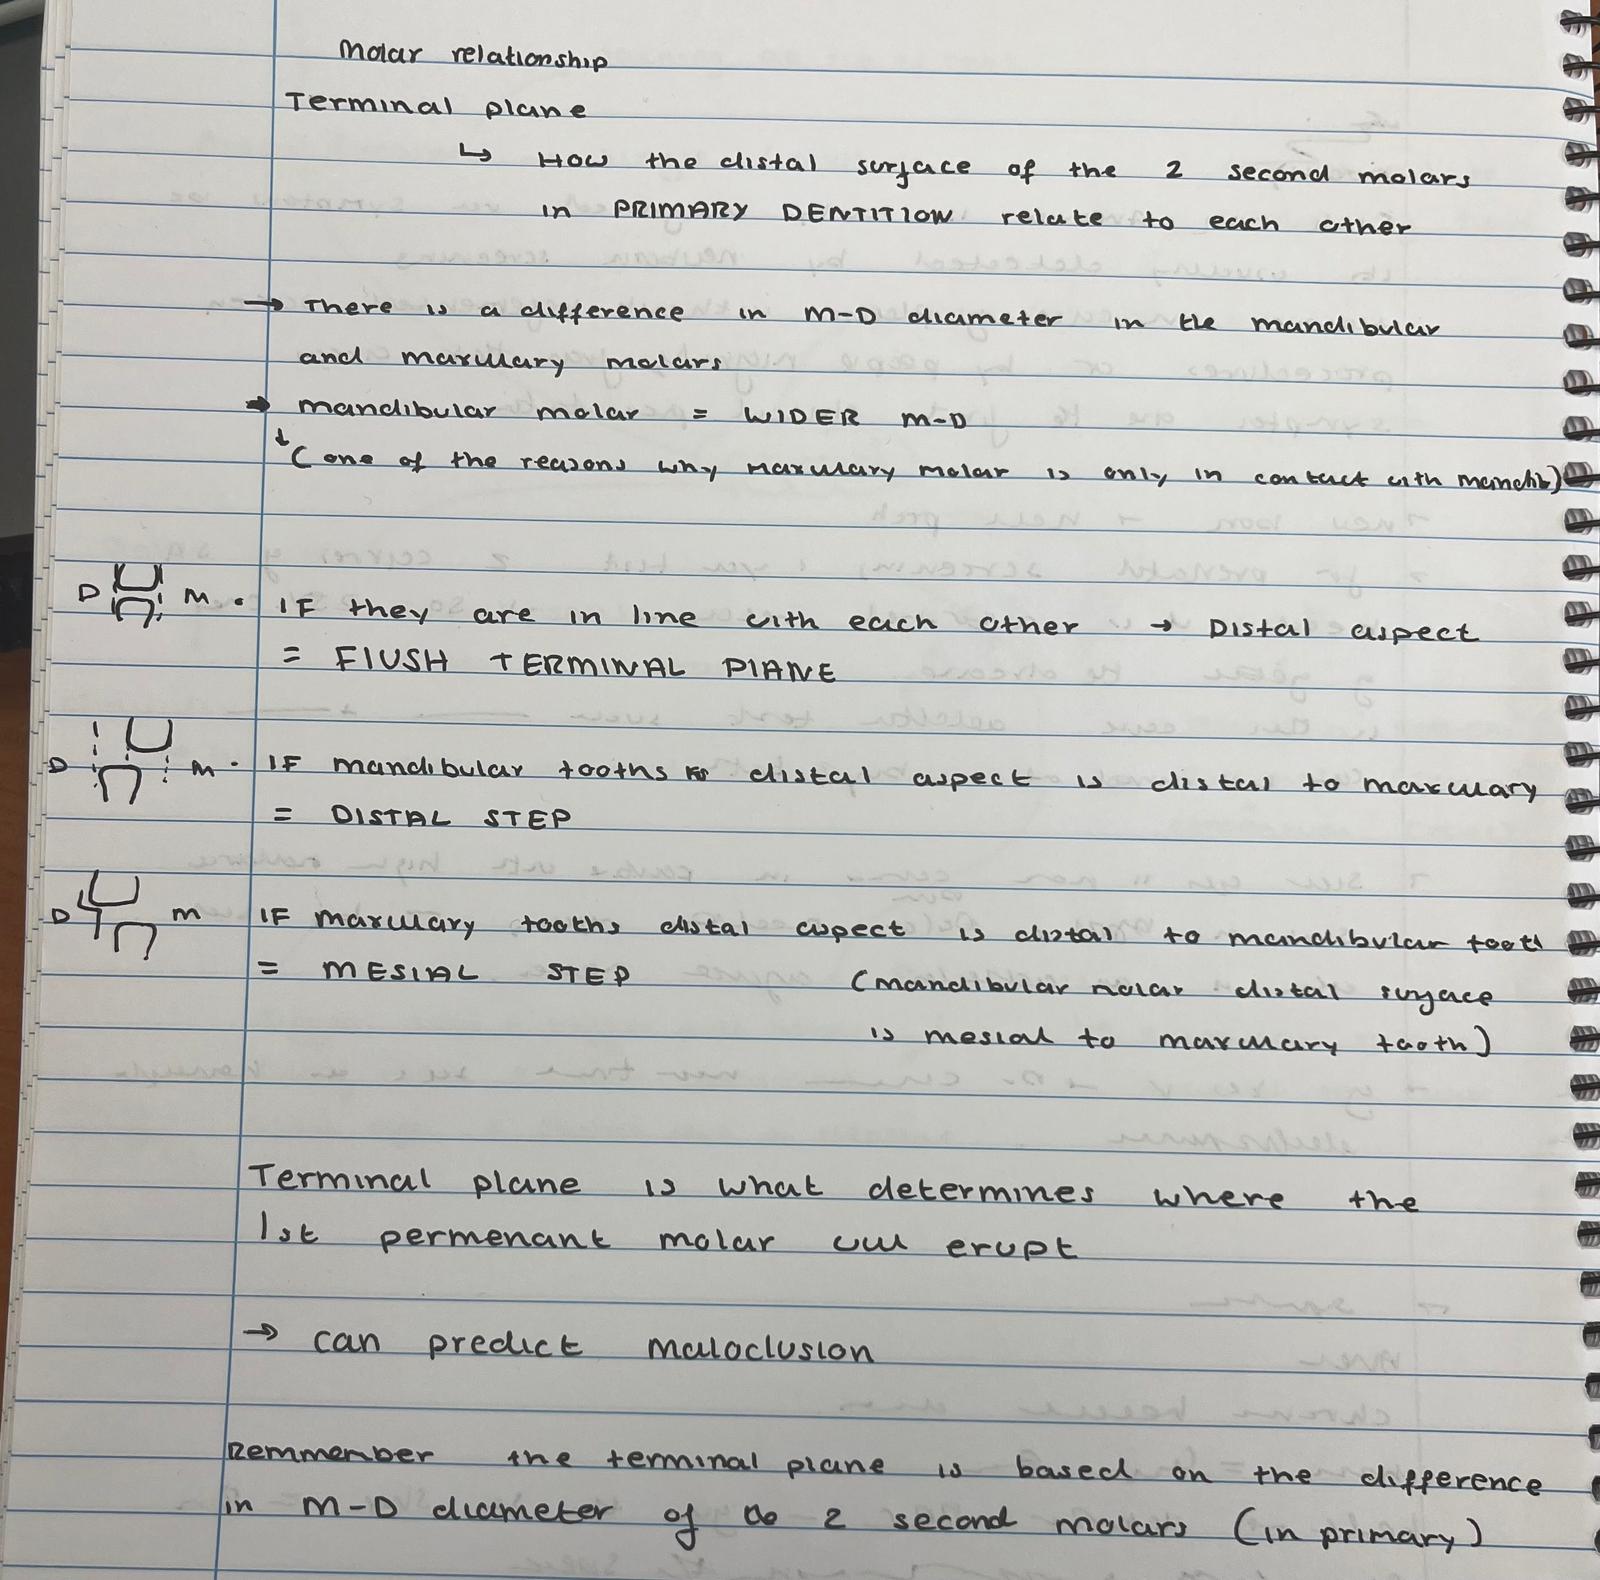 Molar relationship
Terminal plane
↳ How the distal surface of the 2 second molars
in PRIMARY DENTITION relate to each other
→ There is a difference in M-D diameter in the mandibular
and maxillary molars
→ mandibular molar = WIDER M-D
↓
(one of the reasons why maxillary molar is only in contact with mandib)
D M • IF they are in line with each other → Distal aspect
= FLUSH TERMINAL PLANE
D M • IF mandibular tooths distal aspect is distal to maxillary
= DISTAL STEP
D M IF maxillary tooths distal aspect is distal to mandibular tooth
= MESIAL STEP (mandibular molar distal surface
is mesial to maxillary tooth)
Terminal plane is what determines where the
1st permenant molar will erupt
→ can predict maloclusion
Remmember the terminal plane is based on the difference
in M-D diameter of the 2 second molars (in primary)